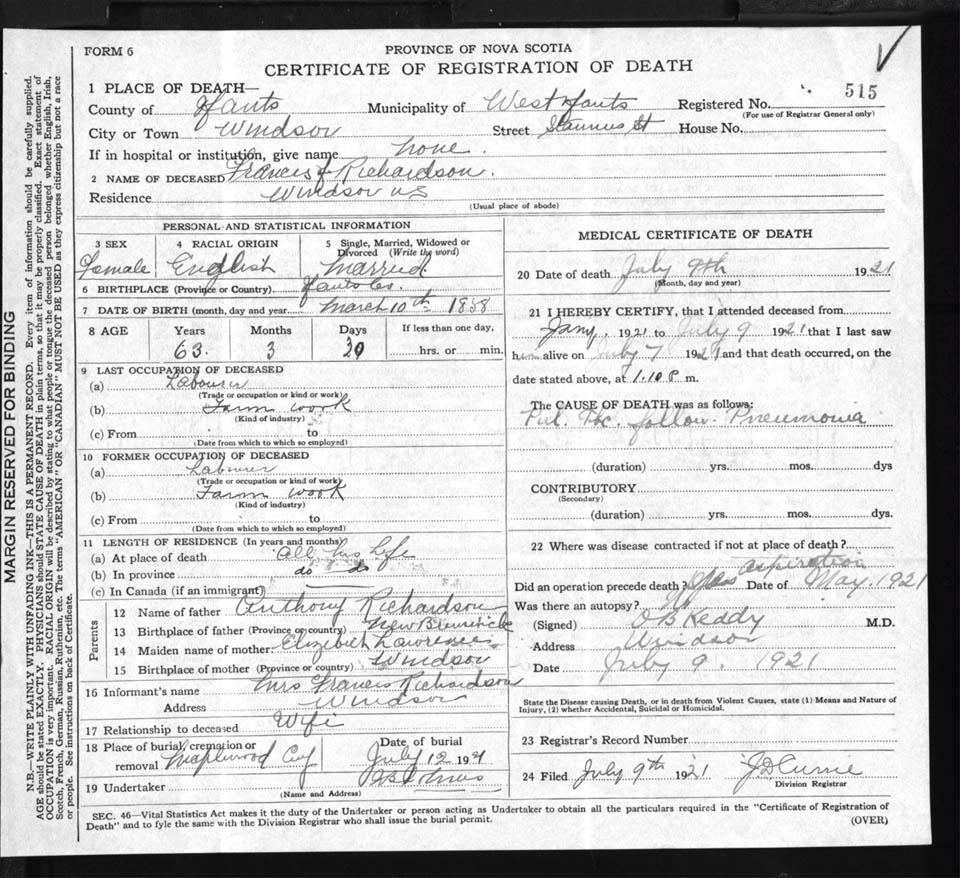 FORM 6
PROVINCE OF NOVA SCOTIA
CERTIFICATE OF REGISTRATION OF DEATH
515
1 PLACE OF DEATH—
County of Hants Municipality of West Hants Registered No.
(For use of Registrar General only)
City or Town Windsor Street Stannus St House No.
If in hospital or institution, give name none.
2 NAME OF DECEASED Francis J Richardson.
Residence Windsor NS
(Usual place of abode)
PERSONAL AND STATISTICAL INFORMATION
3 SEX 4 RACIAL ORIGIN 5 Single, Married, Widowed or Divorced (Write the word)
Female English Married
6 BIRTHPLACE (Province or Country) Hants Co.
7 DATE OF BIRTH (month, day and year) March 10th 1858
8 AGE Years Months Days If less than one day,
63. 3 hrs. or min.
9 LAST OCCUPATION OF DECEASED
(a) Labourer
(Trade or occupation or kind or work)
(b) Farm work
(Kind of industry)
(c) From to
(Date from which to which so employed)
10 FORMER OCCUPATION OF DECEASED
(a) Labourer
(Trade or occupation or kind of work)
(b) Farm work
(Kind of industry)
(c) From to
(Date from which to which so employed)
11 LENGTH OF RESIDENCE (In years and months)
(a) At place of death All his Life
(b) In province do do
(c) In Canada (if an immigrant)
Parents
12 Name of father Anthony Richardson
13 Birthplace of father (Province or country) New Brunswick
14 Maiden name of mother Elizabeth
15 Birthplace of mother (Province or country) Windsor
16 Informant's name Mrs Francis Richardson
Address Windsor
17 Relationship to deceased Wife
18 Place of burial, cremation or removal Maplewood Cy Date of burial July 12 1921
19 Undertaker
(Name and Address)
MEDICAL CERTIFICATE OF DEATH
20 Date of death July 9th 1921
(Month, day and year)
21 I HEREBY CERTIFY, that I attended deceased from
Jany, 1921 to July 9 1921 that I last saw
him alive on July 7 1921 and that death occurred, on the
date stated above, at 1.10 P m.
The CAUSE OF DEATH was as follows:
Pul. Tbc. follow. Pneumonia
(duration) yrs. mos. dys
CONTRIBUTORY
(Secondary)
(duration) yrs. mos. dys.
22 Where was disease contracted if not at place of death?
Did an operation precede death? Yes aspiration Date of May. 1921
Was there an autopsy?
(Signed) O B Keddy M.D.
Address Windsor
Date July 9. 1921
State the Disease causing Death, or in death from Violent Causes, state (1) Means and Nature of
Injury, (2) whether Accidental, Suicidal or Homicidal.
23 Registrar's Record Number
24 Filed July 9th 1921 J D Currie
Division Registrar
SEC. 46—Vital Statistics Act makes it the duty of the Undertaker or person acting as Undertaker to obtain all the particulars required in the "Certificate of Registration of
Death" and to fyle the same with the Division Registrar who shall issue the burial permit. (OVER)
MARGIN RESERVED FOR BINDING
N.B.—WRITE PLAINLY, WITH UNFADING INK—THIS IS A PERMANENT RECORD. Every item of information should be carefully supplied.
AGE should be stated EXACTLY. PHYSICIANS should STATE CAUSE OF DEATH in plain terms, so that it may be properly classified. Exact statement of
OCCUPATION is very important. RACIAL ORIGIN will be described by stating to what people or tongue the deceased person belonged whether English, Irish,
Scotch, French, German, Russian, Ruthenian, etc. The terms "AMERICAN" OR "CANADIAN" MUST NOT BE USED as they express citizenship but not a race
or people. See instructions on back of Certificate.